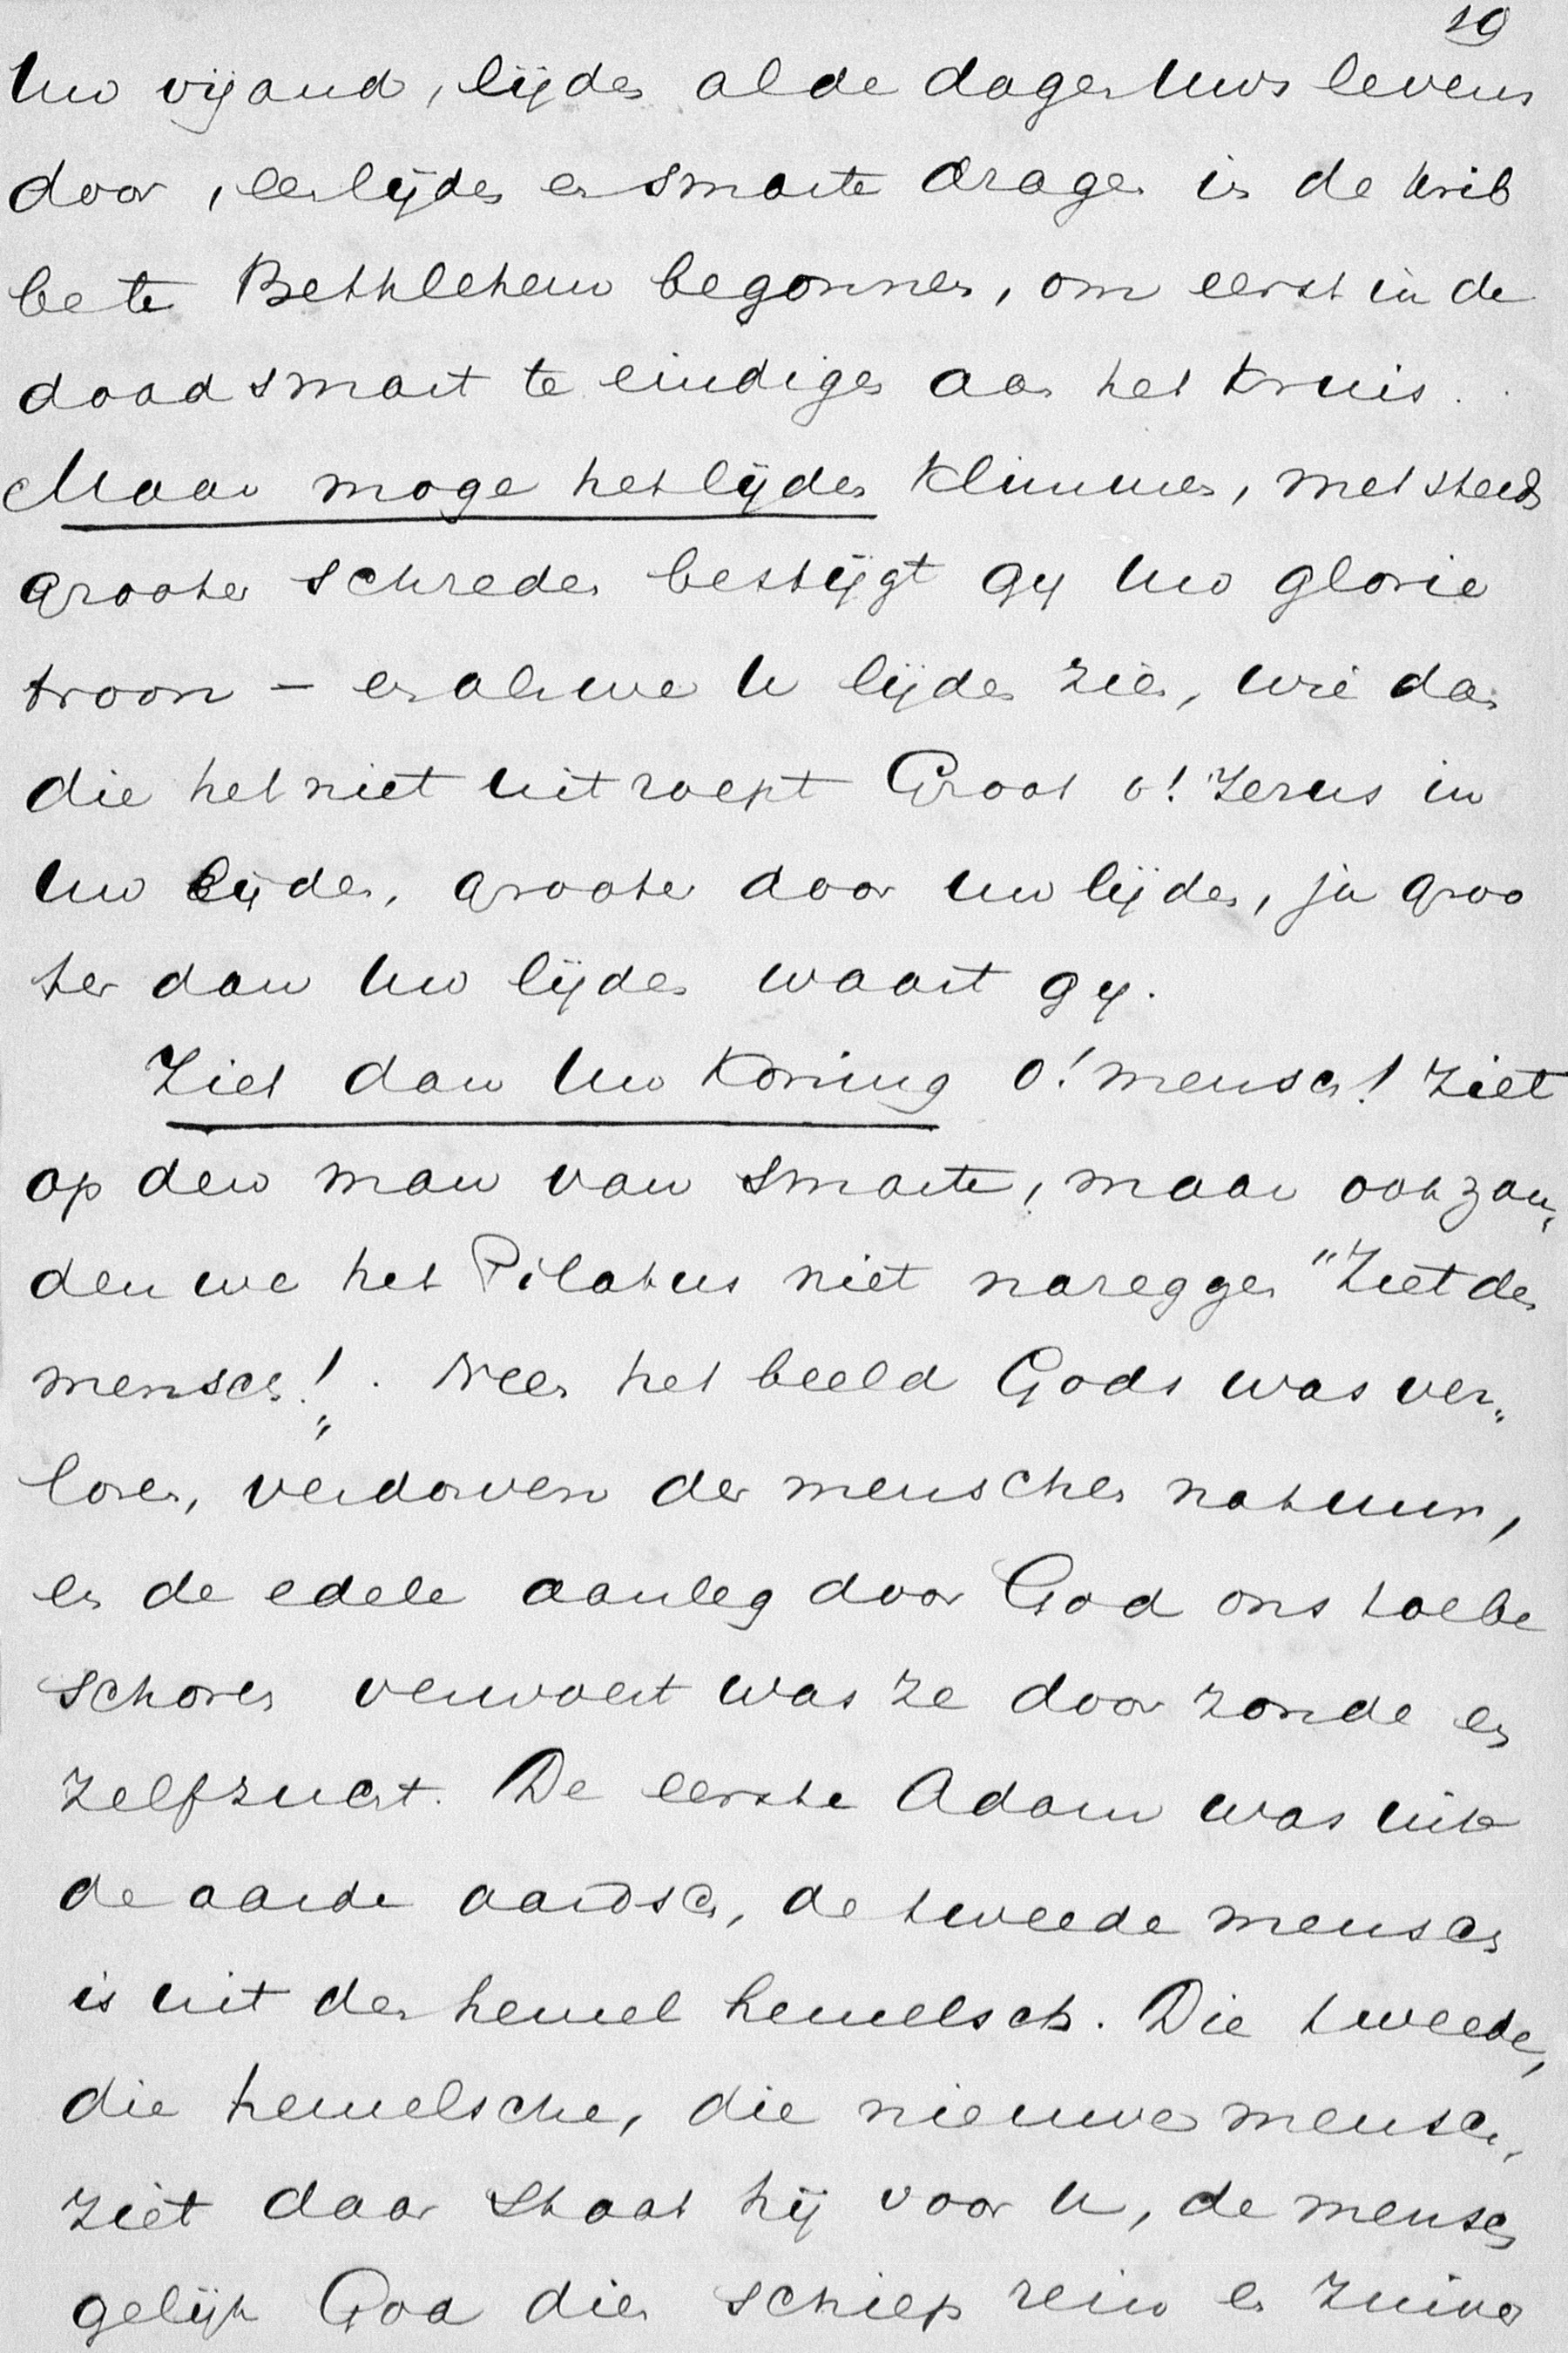 19
Uw vijand, lijden al de dagen Uws levens
door, een lijden en smarte dragen in de krib
be te Bethlehem begonnen, om eerst in de
doodsmart te eindigen aan het kruis.
Maar moge het lijden klimmen, met steeds
grooter schreden bestijgt gy Uw glorie
troon – en als we U lijden zien, wie dan
die het niet uitroept Groot o! Jezus in
Uw lijden, grooter door uw lijden, ja groo
ter dan Uw lijden waart gy.
Ziet dan Uw Koning o! mensch! Ziet
op den man van smarte, maar ook zou„
den we het Pilatus niet nazeggen "Ziet den
mensch!„. Neen het beeld Gods was ver„
loren, verdorven der menschen natuur,
en de edele aanleg door God ons toebe
schoren verwoest was ze door zonde en
zelfzucht. De eerste Adam was uit
de aarde aardsch, de tweede mensch
is uit den hemel hemelsch. Die tweede,
die hemelsche, die nieuwe mensch,
ziet daar staat hij voor U, de mensch
gelijk God dien schiep rein en zuiver